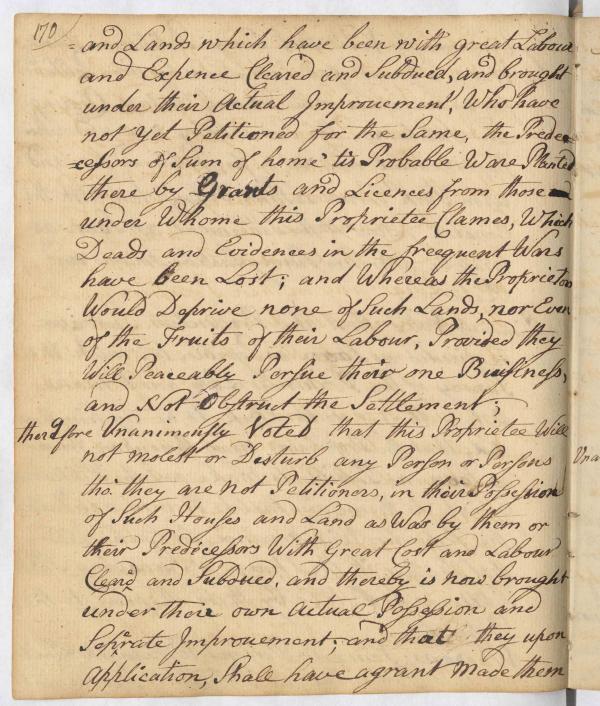 170
= and Lands which have been with great Labour
and Expence Cleared and Subdued, and brought
under their Actual Improuement, Who have
not yet Petitioned for the Same, the Prede=
=cessors of Sum of home tis Probable Ware Planted
there by Grants and Licences from those
under Whome this Proprietee Clames, Which
Deads and Evidences in the freequent Wars
have been Lost; and Whereas the Proprietors
Would Deprive none of Such Lands, nor Even
of the Fruits of their Labour, Provided they
Will Peaceably Persue their one Buisiness,
and Not Obstruct the Settlement;
therefore Unanimously Voted that this Proprietee Will
not molest or Disturb any Person or Persons
tho. they are not Petitioners, in their Possession
of Such Houses and Land as Was by them or
their Predicessors With Great Cost and Labour
Cleard and Subdued, and thereby is now brought
under their own Actual Possession and
Seprate Improuement; and that they upon
Application, Shall have a grant made them
Una